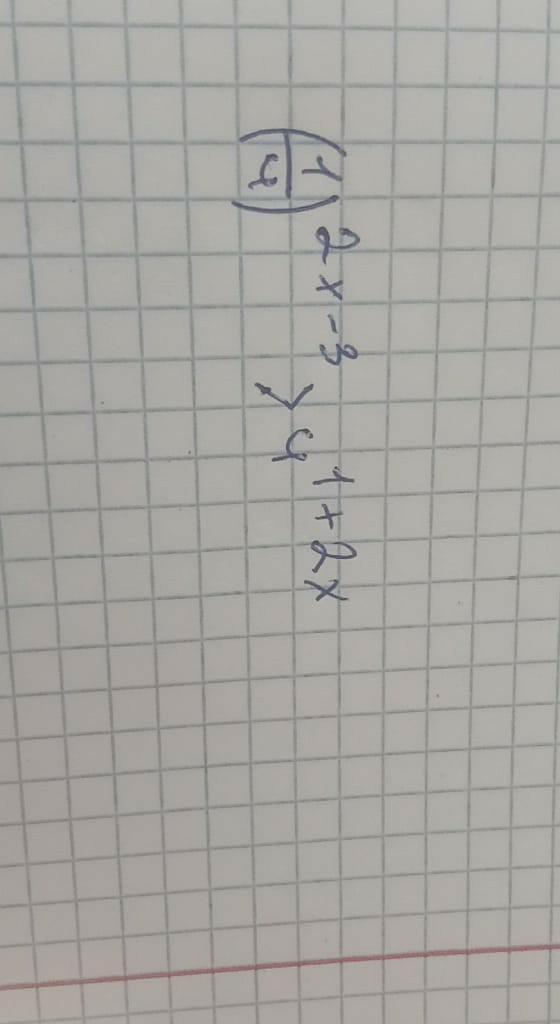 (1/4)^(2x-3) > 4^(1+2x)